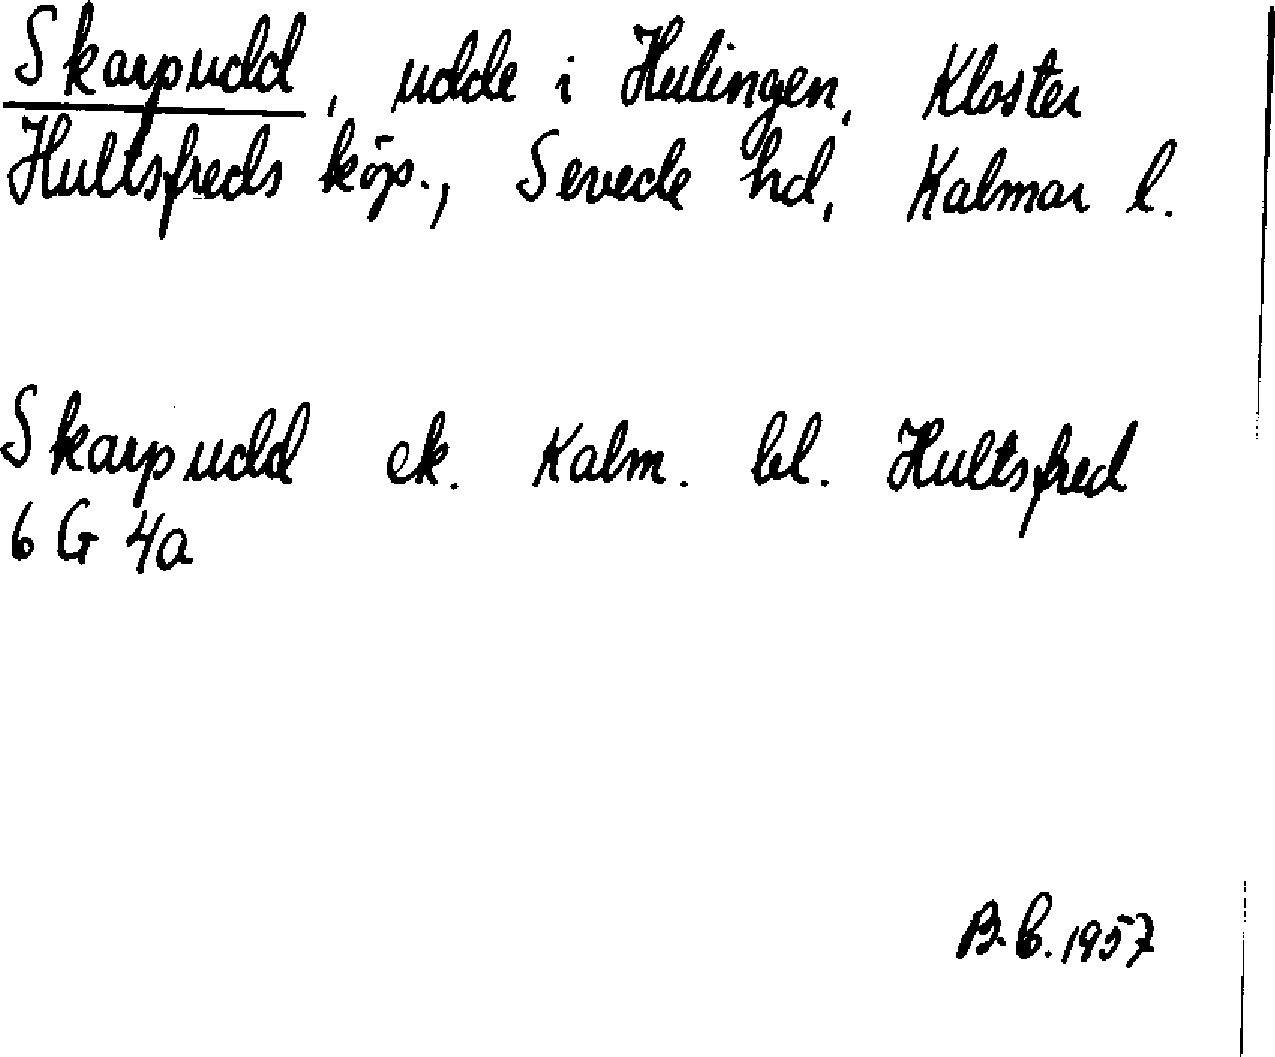 Skarpudd, udde i Hulingen, Kloster
Hultsfreds köp., Sevede hd, Kalmar l.
Skarpudd ek. Kalm. bl. Hultsfred
6 G 4a
B.C. 1957